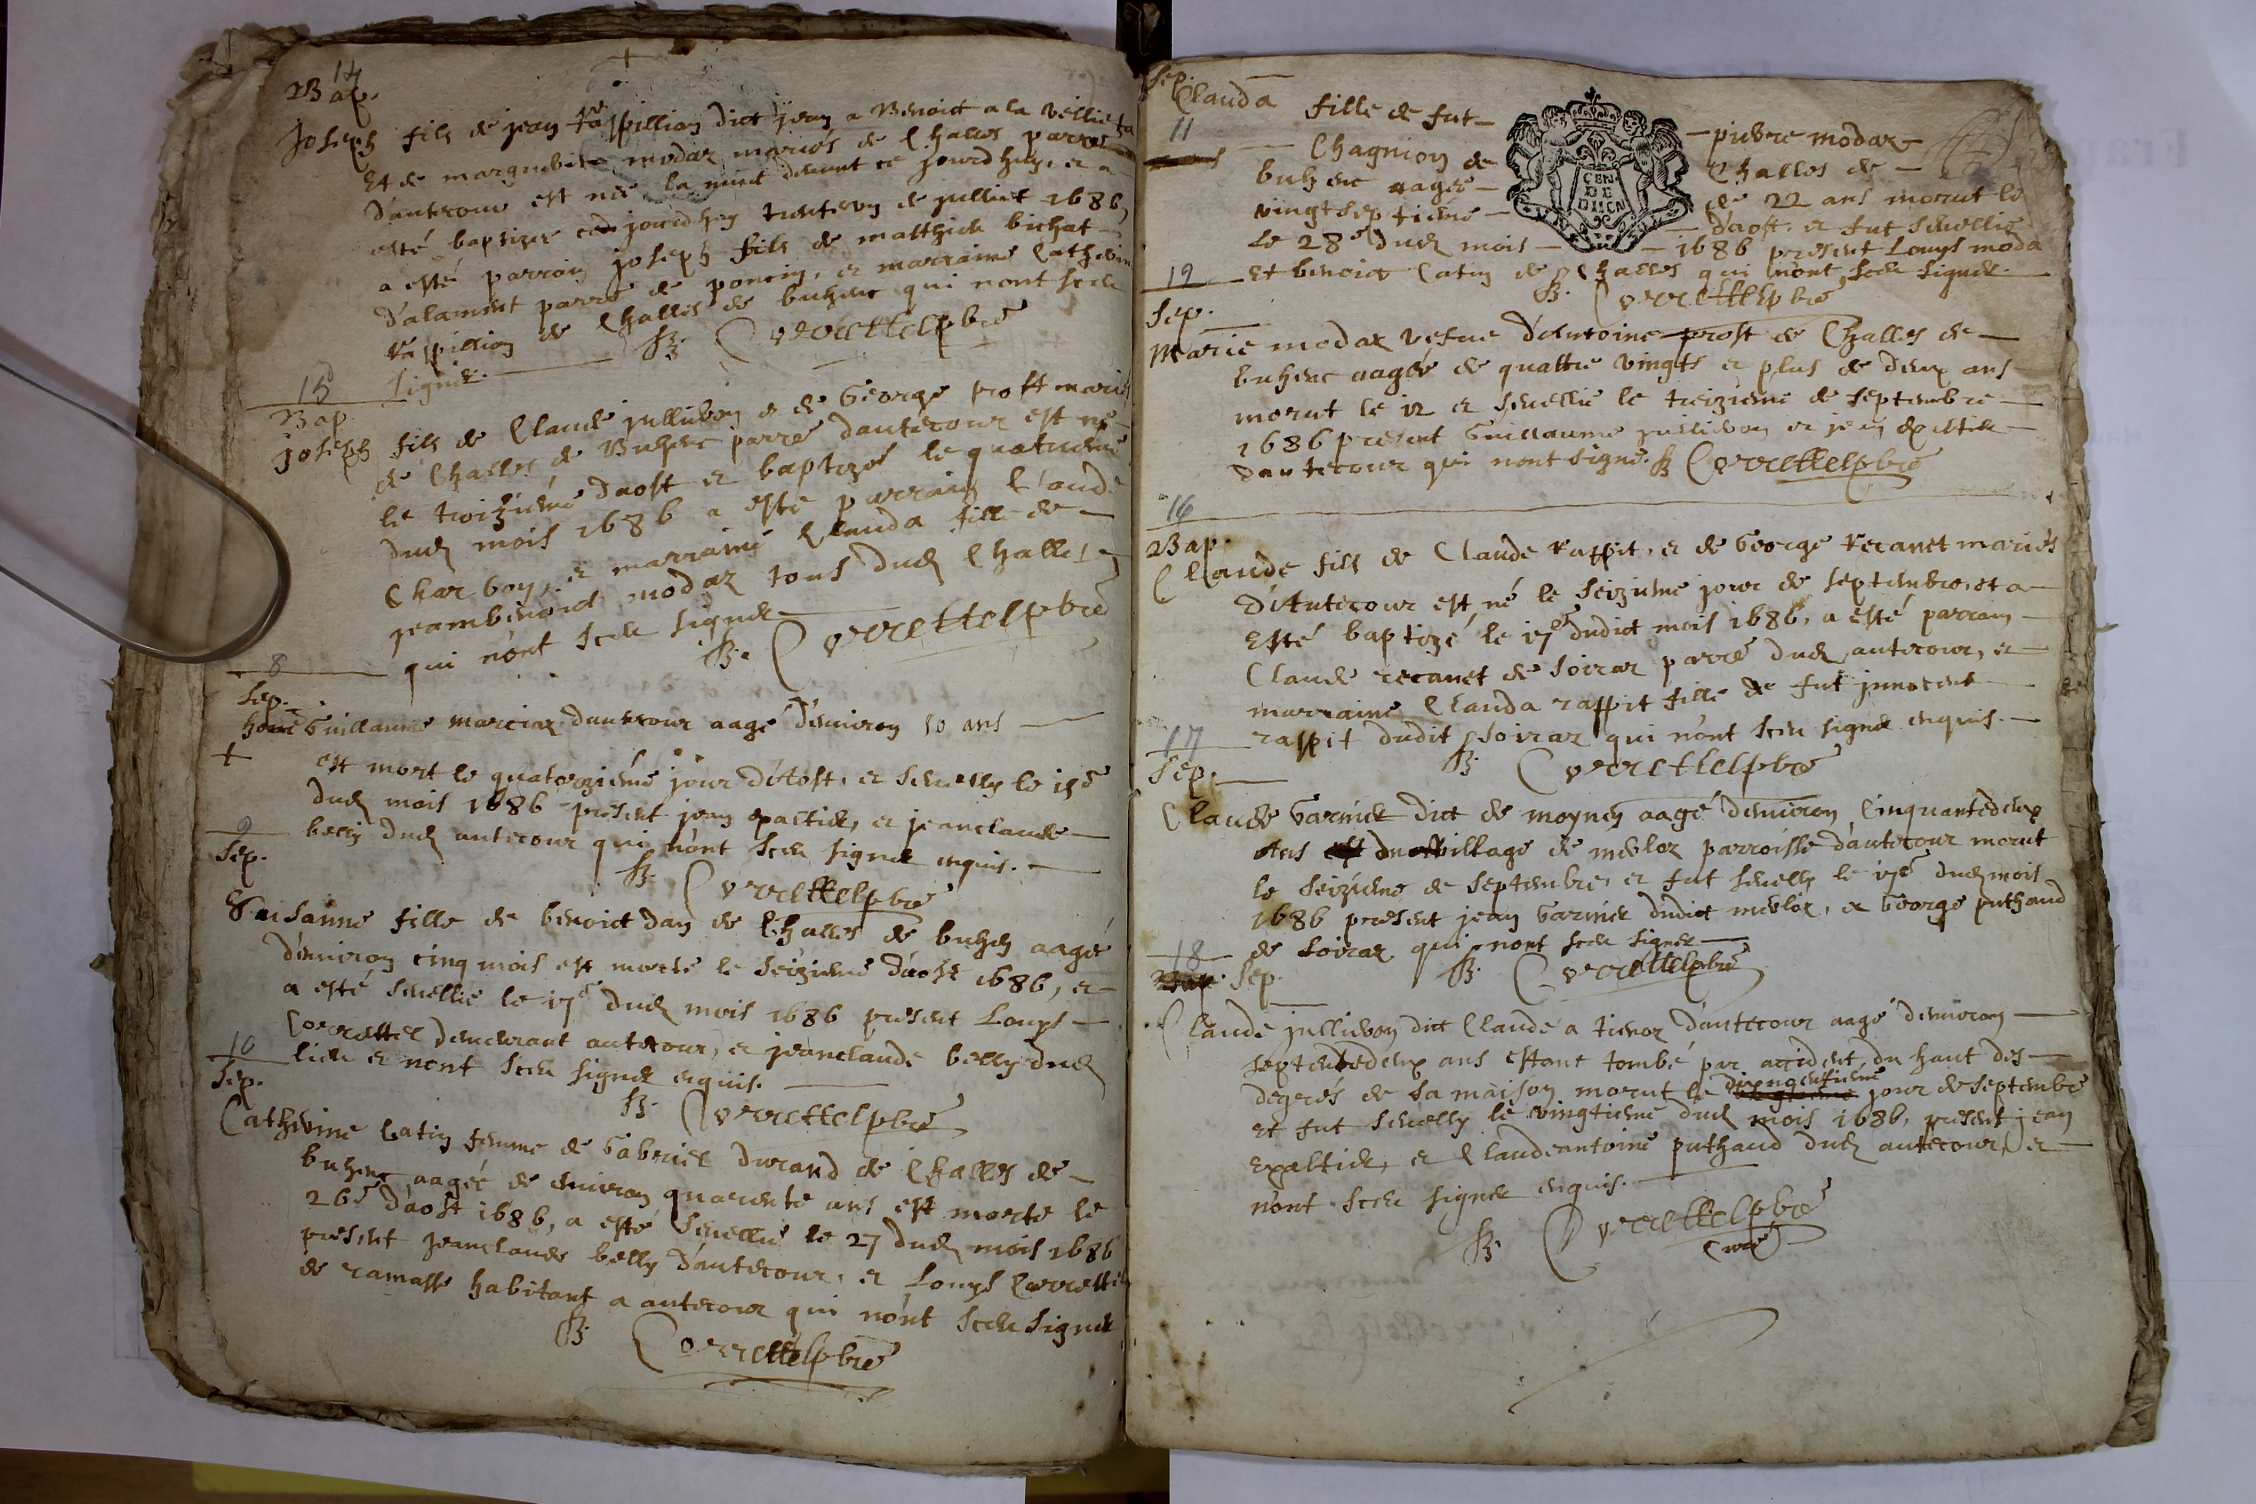 14
Bap.
Joseph fils de jean taspillion dict jean a Benoict a la veillieta
Et de marguerite modaz mariés de Challes parre
d'antecour est né la nuit devant ce jourdhuy, et a
esté baptizé ced jourdhuy trentevn de julliet 1686,
a esté parrain joseph fils de matthieu bichat
d'alament parre de poncin, et marraine Catherin
taspillion de Challes de buhenc qui nont sceu
signer. Correttelpbre
15
Bap
joseph fils de Claude jullieron et de George prost mariés
de Challes de Buhenc parre dantecour est né
le troizieme daost et baptizé le quatrieme
dud mois 1686 a esté parrain Claude
Charboy, et marraine Clauda fille de
jeambenoict modaz tous dud Challes
qui n'ont sceu signer
Correttelpbre
8
Sep.
hone Guillaume marciaz dantecour aagé d'enuiron 50 ans
+ est mort le quatorzieme jour d'Aost, et seuelly le 15e
dud mois 1686 present jean expaltier, et jeanclaude
belly dud antecour qui n'ont sceu signer enquis.
Correttelpbre
9
Sep.
Susanne fille de benoict dan de Challes de buhen aagée
d'enuiron cinq mois est morte le seizieme d'aost 1686, et
a esté seuellie le 17e dud mois 1686 present Louys
Correttel demeurant antecour, et jeanclaude belly dud
lieu et nont sceu signer enquis.
Correttelpbre
10
Sep.
Catherine Catin femme de Gabriel durand de Challes de
buhenc aagée de enuiron quarente ans est morte le
26e d'aost 1686, a esté seuellie le 27 dud mois 1686
present jeanclaude belly d'antecour, et Louys Correttel
de ramasse habitant a antecour qui n'ont sceu signer
Correttelpbre
Sep.
Clauda fille de fut pierre modaz
11
Chagnion de Challes de
buhenc aagée de 22 ans morut le
vingtseptieme d'aost, et fut seuellie
le 28e dud mois 1686 present Louys moda
et benoict Catin de Challes qui n'ont sceu signer.
GEN
DE
DIION
Correttelpbre
12
Sep.
Marie modaz vefue d'Antoine prost de Challes de
buhenc aagée de quattre vingts et plus de deux ans
morut le 12 et seuellie le treizieme de septembre
1686 present Guillaume jullieron et jean expaltier
dantecour qui nont signé. Correttelpbre
16
Bap.
Claude fils de Claude raspit, et de George recanet mariés
d'Antecour est né le seizieme jour de septembre, et a
Esté baptizé le 17e dudict mois 1686, a esté parrain
Claude recanet de Soiraz parre dud antecour, et
marraine Clauda raspit fille de fut jnnocent
raspit dudit Soiraz qui n'ont sceu signer enquis.
Correttelpbre
17
Sep.
Claude Garnier dict de moynen aagé d'enuiron Cinquantedeux
Ans du village de mevloz parroisse d'antecour morut
le seizieme de septembre, et fut seuelly le 17e dud mois
1686 present jean Garnier dudict mevloz, et George puthaud
de Soiraz qui nont sceu signer
Correttelpbre
18
Sep.
Claude jullieron dict Claude a tienoz d'antecour aagé d'enuiron
septentedeux ans estant tombé par accident du haut des
degrés de sa maison morut le dixneufuieme jour de septembre
et fut seuelly le vingtieme dud mois 1686, present jean
expaltier, et Claudeantoine puthaud dud antecour, et
n'ont sceu signer enquis.
Correttelpbre
Curé